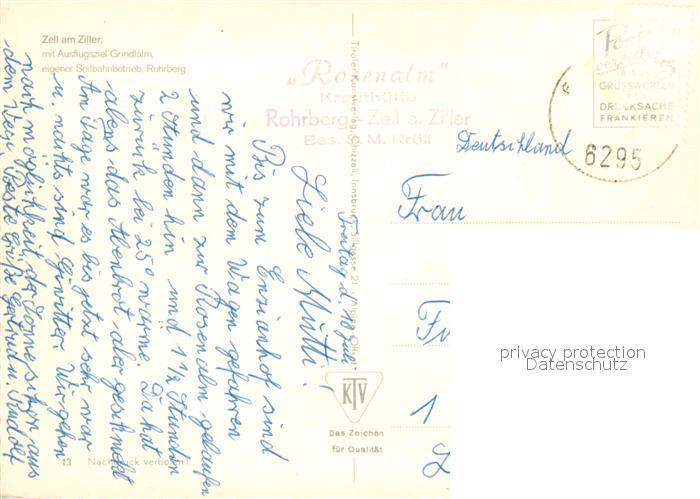 Zell am Ziller,
mit Ausflugsziel Grindlalm,
eigener Seilbahnbetrieb, Rohrberg
"Rosenalm"
Kreuthütte
Rohrberg - Zell a. Ziller
Bes. S. M. Kröll
GRUSSWORTEN
DRUCKSACHE
FRANKIEREN
6295
Deutschland
Frau
Tiroler Kunstverlag Chizzali, Innsbruck
Freitag d. 10. Juli
Liebe Mutti!
Bis zum Enzianhof sind
wir mit dem Wagen gefahren
und dann zur Rosenalm gelaufen
2 Stunden hin und 1 1/2 Stunden
zurück bei 25° wärme. Da hat
abens das Abenbrot aber geschmekt
Am Tage war es bis jetzt sehr war
u. nachts sind Gewitter. Wir gehen
nach möglichkeit der Sonne schon aus
dem Wege. Beste Grüße Gertrud u. Rudolf
1
KTV
Das Zeichen
für Qualität
13 Nachdruck verboten!
privacy protection
Datenschutz